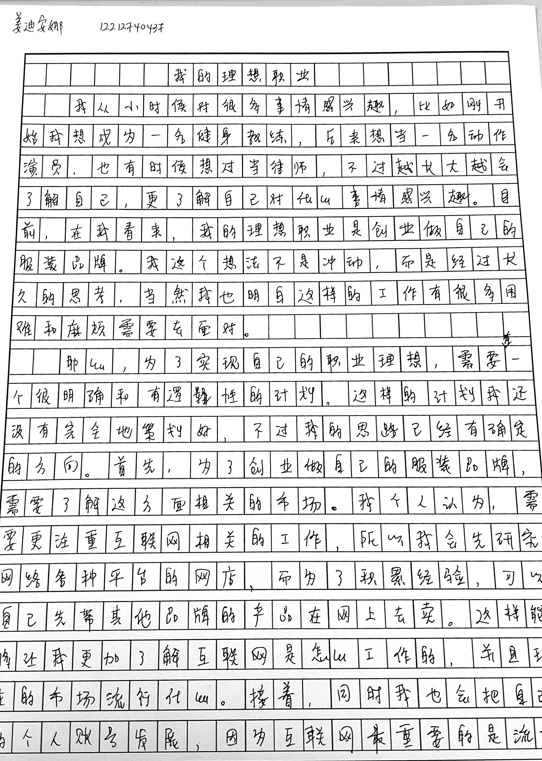 姜迪安娜 12212740437
我的理想职业
我从小时候对很多事情感兴趣，比如刚开
始我想成为一名健身教练，后来想当一名动作
演员，也有时候想过当律师，不过越长大越会
了解自己，更了解自己对什么事情感兴趣。目
前，在我看来，我的理想职业是创业做自己的
服装品牌。我这个想法不是冲动，而是经过长
久的思考，当然我也明白这样的工作有很多困
难和麻烦需要去面对。
那么，为了实现自己的职业理想，需要一
个很明确和有逻辑性的计划。这样的计划我还
没有完全地策划好，不过我的思路已经有确定
的方向。首先，为了创业做自己的服装品牌，
需要了解这方面相关的市场。我个人认为，需
要更注重互联网相关的工作，所以我会先研究
网络各种平台的网店，而为了积累经验，可以
自己先带其他品牌的产品在网上去卖。这样能
够让我更加了解互联网是怎么工作的，并且现
在的市场流行什么。接着，同时我也会把自己
的个人账号发展，因为互联网最重要的是流